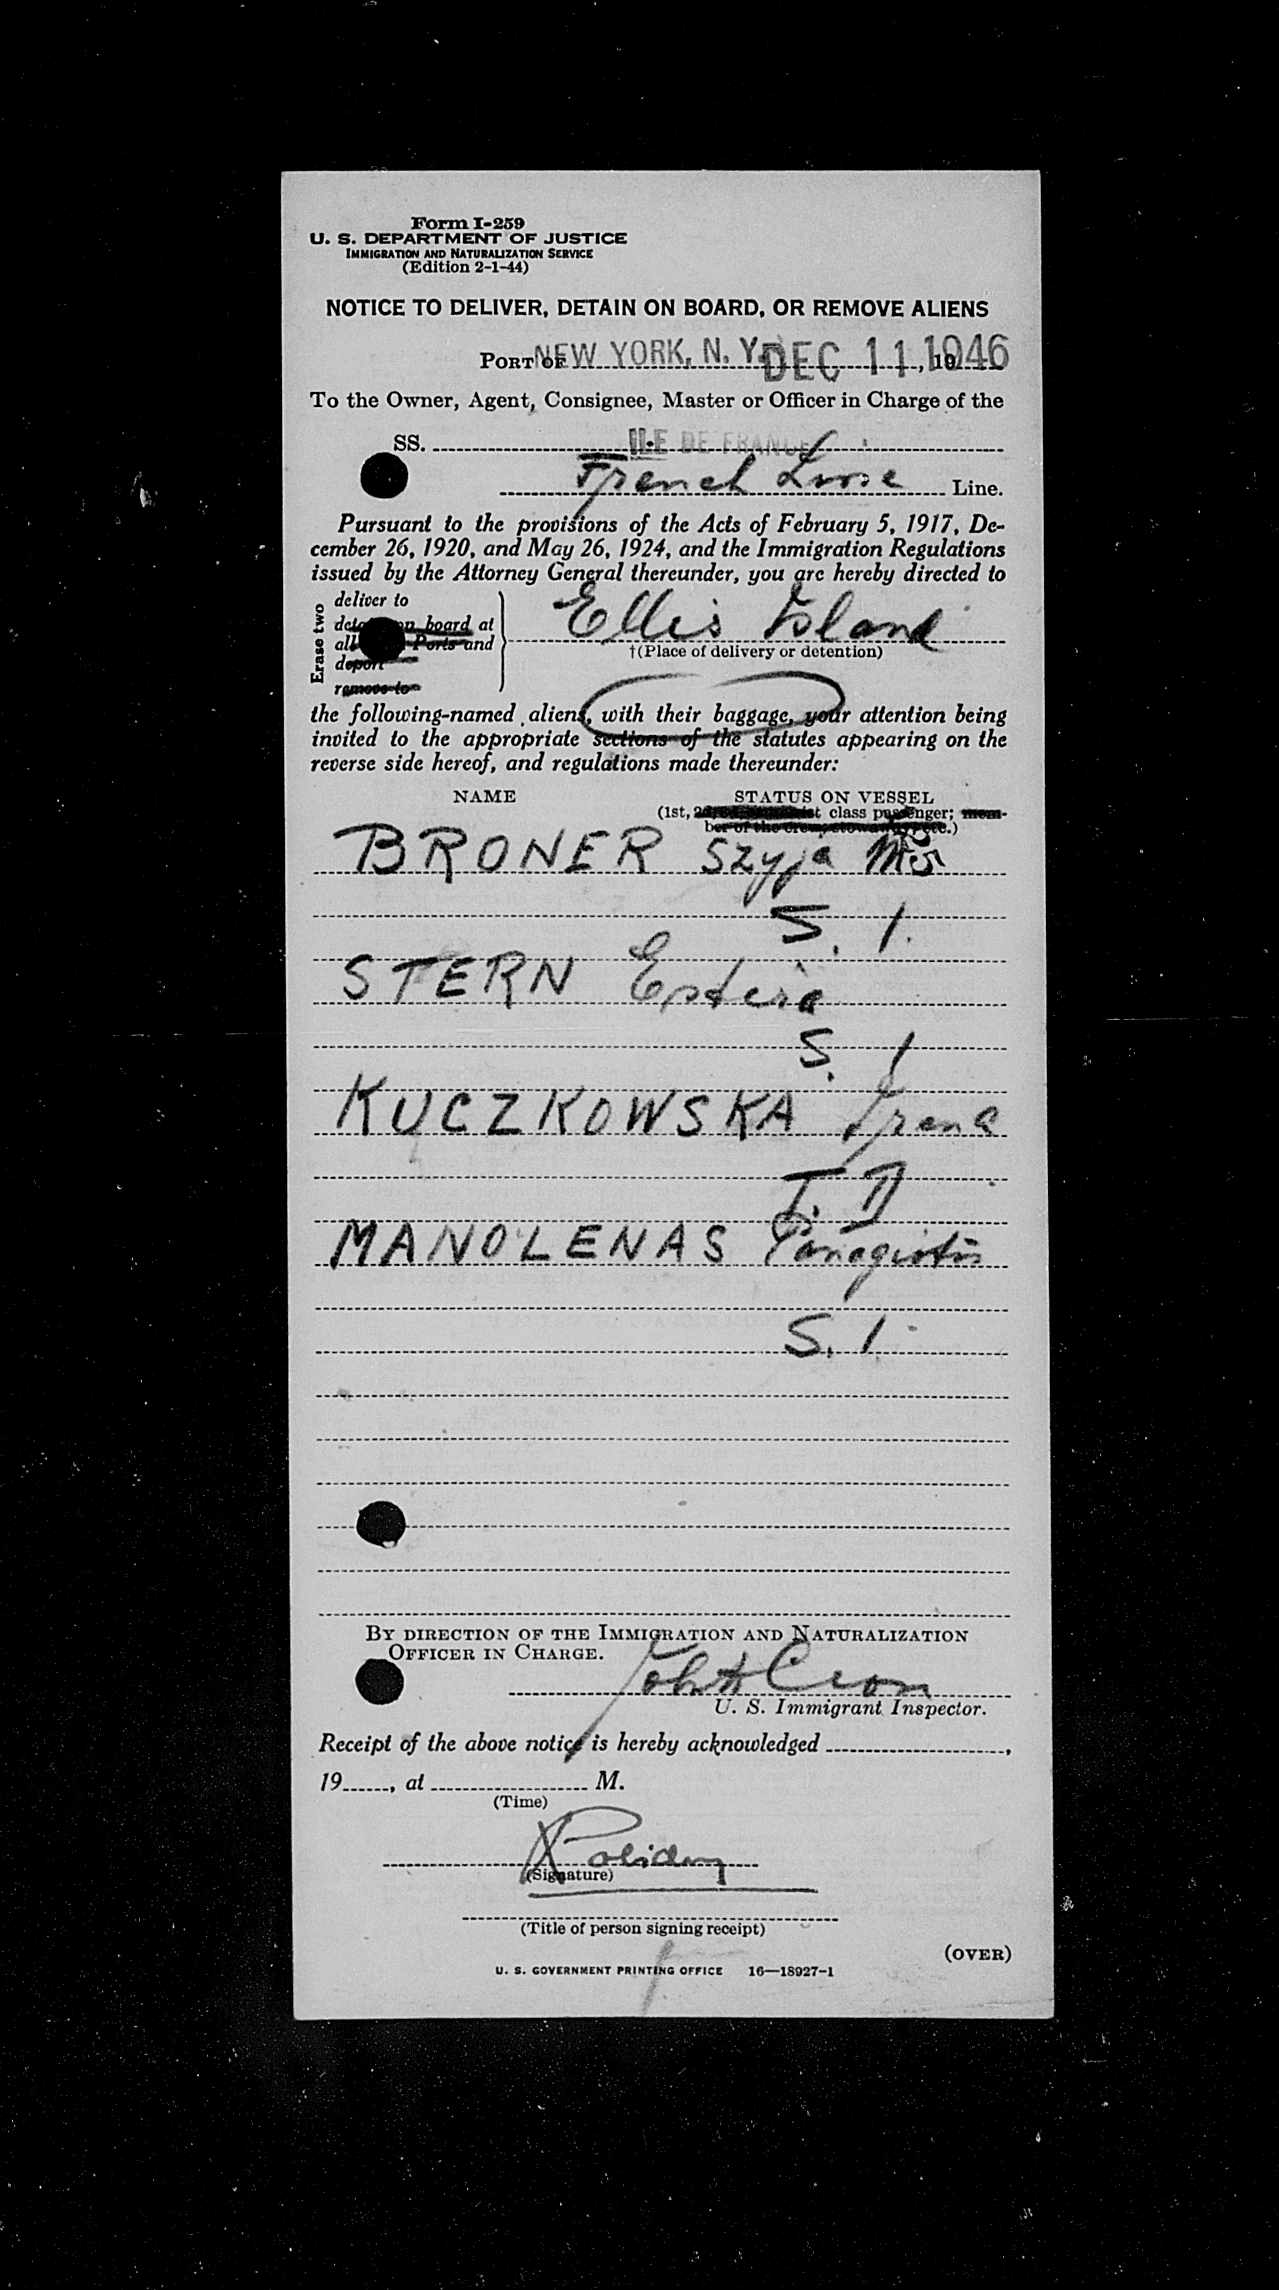 Form I-259
U. S. DEPARTMENT OF JUSTICE
IMMIGRATION AND NATURALIZATION SERVICE
(Edition 2-1-44)
NOTICE TO DELIVER, DETAIN ON BOARD, OR REMOVE ALIENS
PORT OF NEW YORK, N. Y. DEC 11, 1946
To the Owner, Agent, Consignee, Master or Officer in Charge of the
SS. ILE DE FRANCE
French Line Line.
Pursuant to the provisions of the Acts of February 5, 1917, De-
cember 26, 1920, and May 26, 1924, and the Immigration Regulations
issued by the Attorney General thereunder, you are hereby directed to
Erase two
deliver to
on board at
all Ports and
deport
remove to
Ellis Island
†(Place of delivery or detention)
the following-named aliens, with their baggage, your attention being
invited to the appropriate sections of the statutes appearing on the
reverse side hereof, and regulations made thereunder:
NAME STATUS ON VESSEL
(1st, class passenger; mem-
ber of the crew, stowaway, etc.)
BRONER Szyja M 25
S. I.
STERN Estera
S. I
KUCZKOWSKA Irena
T. D
MANOLENAS Panagiotis
S. I.
BY DIRECTION OF THE IMMIGRATION AND NATURALIZATION
OFFICER IN CHARGE.
U. S. Immigrant Inspector.
Receipt of the above notice is hereby acknowledged ,
19 , at M.
(Time)
(Signature)
(Title of person signing receipt)
(OVER)
U. S. GOVERNMENT PRINTING OFFICE 16—18927-1